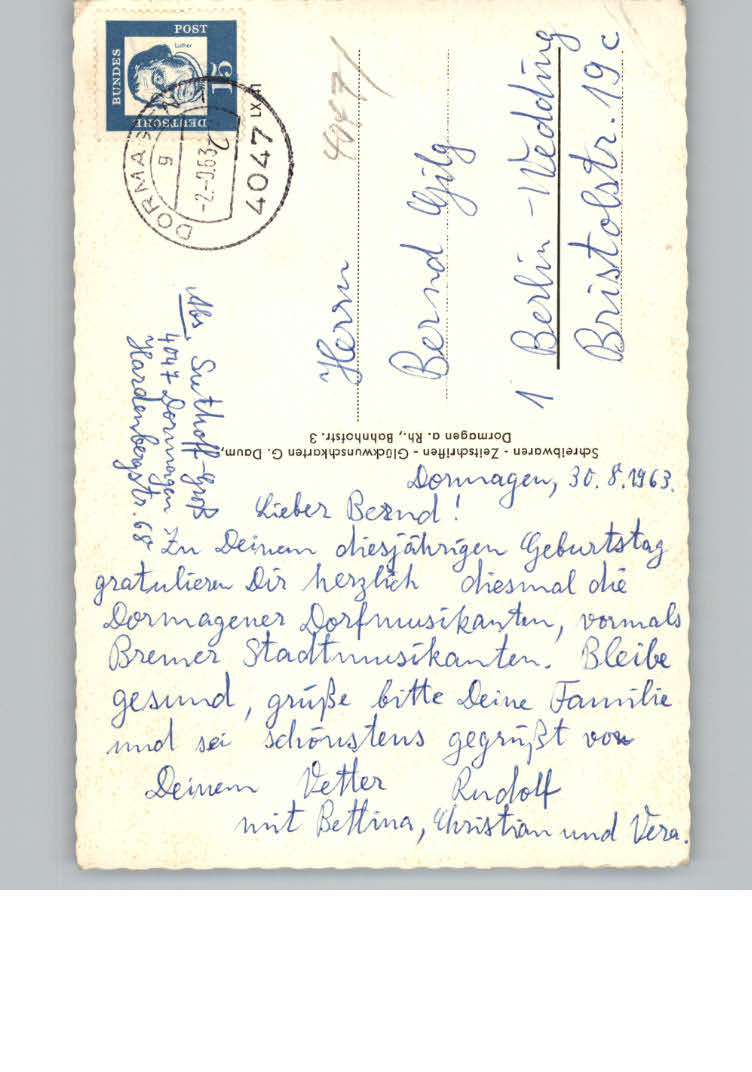 DEUTSCHE
BUNDES
POST
15
Luther
DORMAGEN
g
-2.-9.63
4047
LX41
4047/
Herrn
Bernd Gilg
1 Berlin-Wedding
Bristolstr. 19c
Abs. Suthoff-Groß
4047 Dormagen
Hardenbergstr. 68
Schreibwaren - Zeitschriften - Glückwunschkarten G. Daum,
Dormagen a. Rh., Bahnhofstr. 3
Dormagen, 30.8.1963.
Lieber Bernd!
Zu Deinem diesjährigen Geburtstag
gratulieren Dir herzlich diesmal die
Dormagener Dorfmusikanten, vormals
Bremer Stadtmusikanten. Bleibe
gesund, grüße bitte Deine Familie
und sei schönstens gegrüßt von
Deinem Vetter Rudolf
mit Bettina, Christian und Vera.